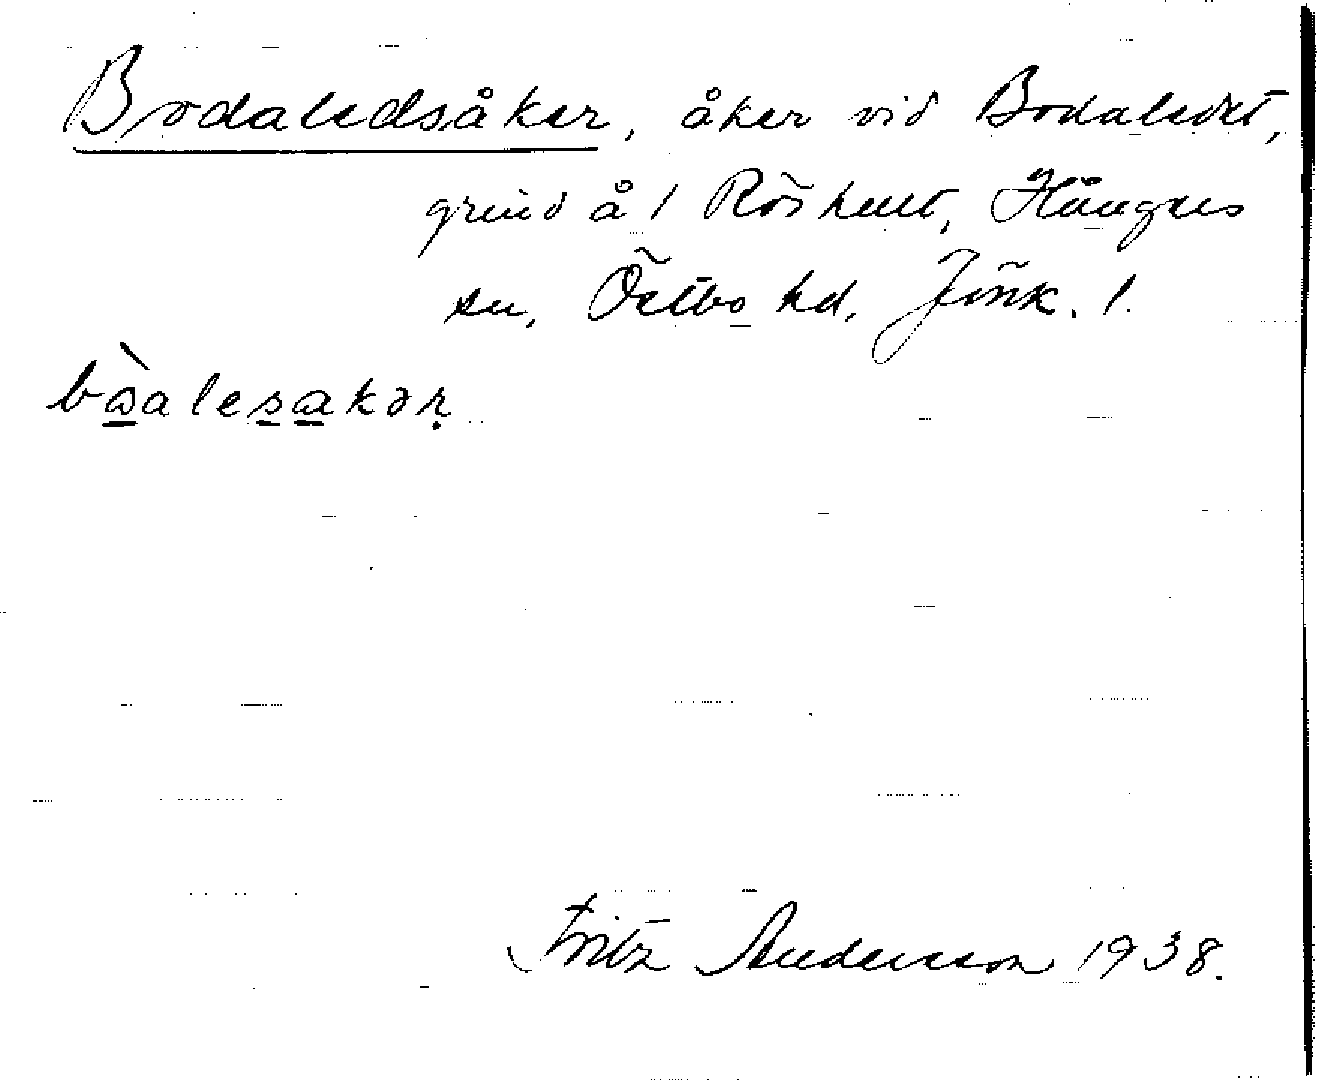 Bodaledsåker, åker vid Bodaledet,
grind å 1 Röshult, Hånger
sn, Östbo hd, Jönk. l.
bòalesakər
Fritz Andersson 1938.